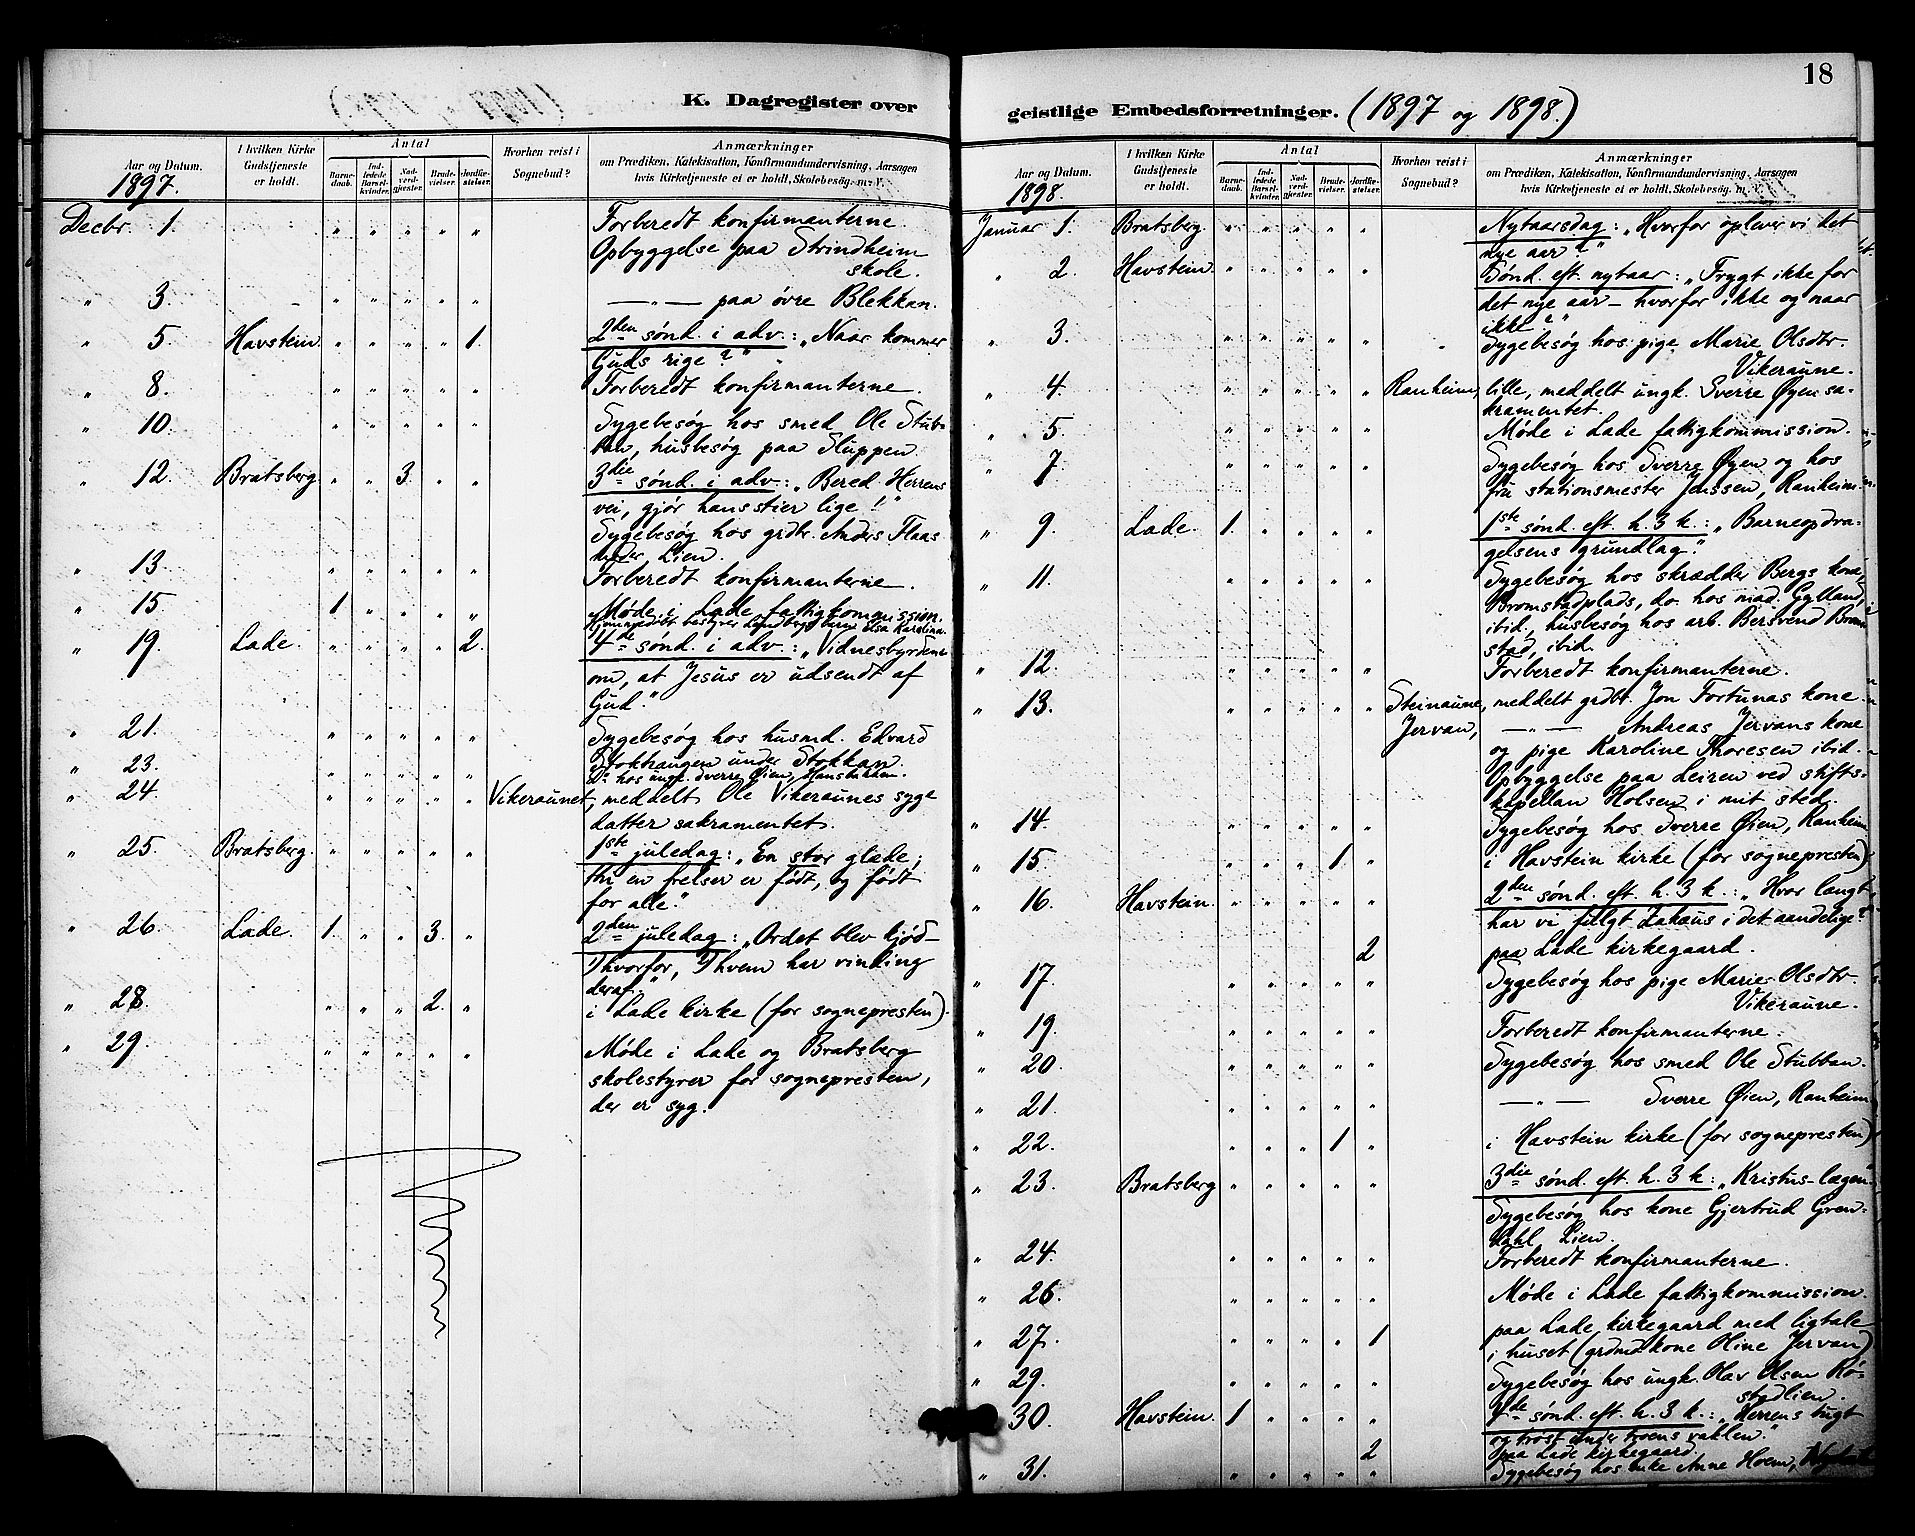 18
K. Dagregister over
geistlige Embedsforretninger. (1897 og 1898.)
Aar og Datum.
1897.
I hvilken Kirke Gudstjeneste er holdt.
Antal
Barnedaab.
Indledede Barselkvinder.
Nadverdgjester.
Brudevielser.
Jordfæstelser.
Hvorhen reist i Sognebud?
Anmærkninger
om Prædiken, Katekisation, Konfirmandundervisning, Aarsagen
hvis Kirketjeneste ei er holdt, Skolebesøg m. v.
Decbr 1. " " " " " Forberedt konfirmanterne.
Opbyggelse paa Strindheim
skole.
" 3. " " " " " — " — paa øvre Blekkan.
" 5. Havstein " " " " 1. 2den sønd. i adv.: „Naar kommer
Guds rige?"
" 8. " " " " " Forberedt konfirmanterne.
" 10. " " " " " Sygebesøg hos smed Ole Stub-
ban, husbesøg paa Sluppen.
" 12. Bratsberg. " " 3. " " 3die sønd. i adv.: „Bered Herrens
vei, gjør hans stier lige!"
Sygebesøg hos grdbr. Anders Flaas
under Lien.
" 13. " " " " " Forberedt konfirmanterne.
" 15. 1 " " " " Møde i Lade fattigkommission.
Hjemmedøbt bestyrer Lundbergs barn Elsa Karolina.
" 19. Lade. " " " " 2. 4de sønd. i adv.: „Vidnesbyrdene
om, at Jesus er udsendt af
Gud."
" 21. " " " " " Sygebesøg hos husmd. Edvard
Stokhaugen under Stokkan.
" 23. " " " " " Do hos ungk. Sverre Øien,
" 24. " " " " " Vikeraunet, meddelt Ole Vikeraunes syge
datter sakramentet.
" 25. Bratsberg. " " " " " 1ste juledag: „En stor glæde;
thi en frelser er født, og født
for alle."
" 26. Lade. 1. " " 3. " 2den juledag: „Ordet blev kjød –
1 hvorfor, 2 hvem har vinding
deraf."
" 28. " " " 2. " i Lade kirke (for sognepresten).
" 29. " " " " " Møde i Lade og Bratsberg
skolestyrer for sognepresten,
der er syg.
Aar og Datum.
1898.
I hvilken Kirke Gudstjeneste er holdt.
Antal
Barnedaab.
Indledede Barselkvinder.
Nadverdgjester.
Brudevielser.
Jordfæstelser.
Hvorhen reist i Sognebud?
Anmærkninger
om Prædiken, Katekisation, Konfirmandundervisning, Aarsagen
hvis Kirketjeneste ei er holdt, Skolebesøg m. v.
Januar 1. Bratsberg. " " " " " Nytaarsdag: „Hvorfor oplever vi det
nye aar?"
" 2. Havstein. " " " " " Sønd. eft. nytaar: „Frygt ikke for
det nye aar – hvorfor ikke og naar
ikke?"
" 3. " " " " " " Sygebesøg hos pige Marie Olsdtr.
Vikeraune.
" 4. " " " " " Ranheim, lille, meddelt ungk. Sverre Øyen sa-
kramentet.
" 5. " " " " " Møde i Lade fattigkommission.
" 7. " " " " " Sygebesøg hos Sverre Øyen og hos
fru stationsmester Jenssen, Ranheim.
" 9. Lade. 1. " " " " 1ste sønd. eft. h. 3 k.: „Barneopdra-
gelsens grundlag."
" 11. " " " " " Sygebesøg hos skrædder Bergs kone
Bromstadplads, do. hos mad. Gylland,
ibid, husbesøg hos arb. Bersvend Brom-
stad, ibid.
" 12. " " " " " Forberedt konfirmanterne.
" 13. " " " " " Steinaune, meddelt grdbr. Jon Fortunas kone
Jervan, — " — Andreas Jervans kone
og pige Karoline Thoresen ibid.
Opbyggelse paa Leiren ved stifts-
kapellan Holsen i mit sted.
" 14. " " " " " Sygebesøg hos Sverre Øien, Ranheim.
" 15. " " " 1. " i Havstein kirke (for sognepresten)
" 16. Havstein. " " " " " 2den sønd. eft. h. 3 k.: „Hvor langt
har vi fulgt Lukaus i det aandelige?"
2 paa Lade kirkegaard.
" 17. " " " " " Sygebesøg hos pige Marie Olsdtr.
Vikeraune.
" 19. " " " " " Forberedt konfirmanterne.
" 20. " " " " " Sygebesøg hos smed Ole Stubban.
" 21. " " " " " — " — Sverre Øien, Ranheim
" 22. " " " 1 " i Havstein kirke (for sognepresten)
" 23. Bratsberg " " " " " 3die sønd. eft. h. 3 k.: „Kristus – lægen"
Sygebesøg hos kone Gjertrud Gren-
dahl Lien.
" 24. " " " " " Forberedt konfirmanterne.
" 26. " " " " " Møde i Lade fattigkommission.
" 27. " " " " 1 paa Lade kirkegaard med ligtale
i huset (grdmd.kone Oline Jervan)
" 29. " " " " " Sygebesøg hos ungk. Olav Olsen Rø-
stadlien.
30. Havstein. 1 " " " " 4de sønd. eft. h. 3 k.: „Herrens tugt
og trøst under troens vaklen."
2 paa Lade kirkegaard.
" 31. " " " " " Sygebesøg hos enke Anne Hoem,